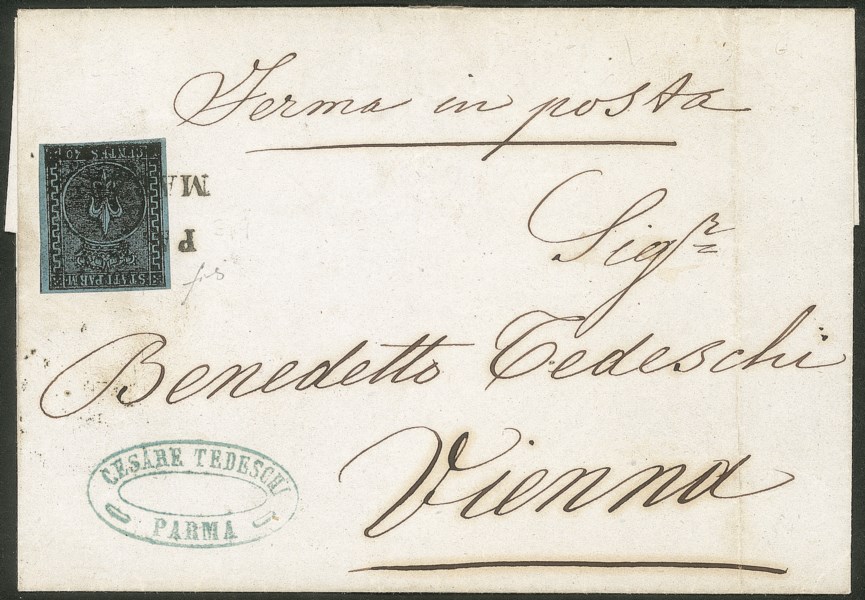 Ferma in posta
CENTES. 40
STATI PARM.
MA
P
Sigr
Benedetto Tedeschi
Vienna
CESARE TEDESCHI
PARMA